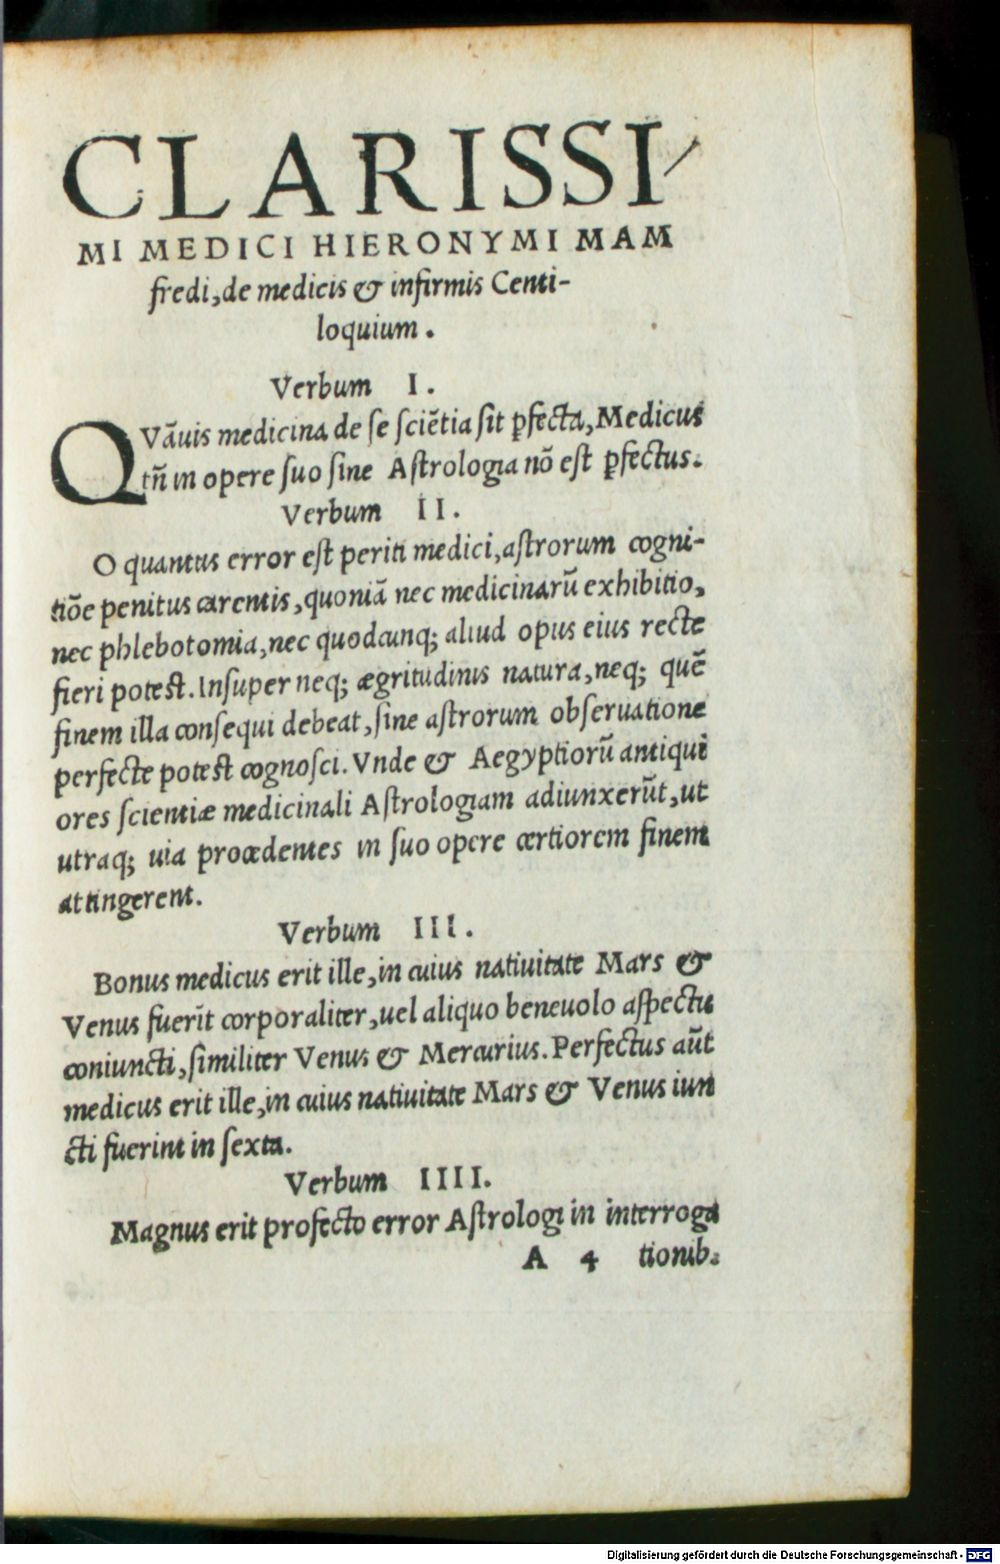 CLARISSI-
MI MEDICI HIERONYMI MAM
fredi, de medicis & infirmis Centi-
loquium.
Verbum I.
QVāuis medicina de se sciētia sit ꝑfecta, Medicus
tn̄ in opere suo sine Astrologia nō est ꝑfectus.
Verbum II.
O quantus error est periti medici, astrorum cogni-
tiōe penitus carentis, quoniā nec medicinarū exhibitio,
nec phlebotomia, nec quodcunq; aliud opus eius recte
fieri potest. Insuper neq; ægritudinis natura, neq; quē
finem illa consequi debeat, sine astrorum obseruatione
perfecte potest cognosci. Vnde & Aegyptiorū antiqui
ores scientiæ medicinali Astrologiam adiunxerūt, ut
utraq; uia procedentes in suo opere certiorem finem
attingerent.
Verbum III.
Bonus medicus erit ille, in cuius natiuitate Mars &
Venus fuerīt corporaliter, uel aliquo beneuolo aspectu
coniuncti, similiter Venus & Mercurius. Perfectus aūt
medicus erit ille, in cuius natiuitate Mars & Venus iun
cti fuerint in sexta.
Verbum IIII.
Magnus erit profecto error Astrologi in interroga
A 4 tionib.
Digitalisierung gefördert durch die Deutsche Forschungsgemeinschaft - DFG